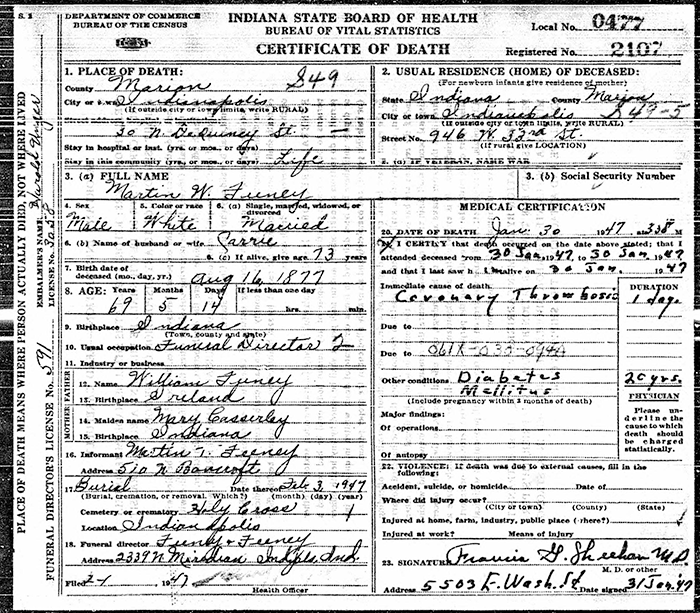 S. 1
DEPARTMENT OF COMMERCE
BUREAU OF THE CENSUS
INDIANA STATE BOARD OF HEALTH
BUREAU OF VITAL STATISTICS
CERTIFICATE OF DEATH
Local No. 0477
Registered No. 2107
PLACE OF DEATH MEANS WHERE PERSON ACTUALLY DIED, NOT WHERE LIVED
EMBALMER'S NAME
LICENSE No. 3258
FUNERAL DIRECTOR'S LICENSE No. 591
1. PLACE OF DEATH: S49
County Marion
City or town Indianapolis
(If outside city or town limits, write RURAL)
30 N. DeQuincy St. —
Stay in hospital or inst. (yrs. or mos. or days)
Stay in this community (yrs. or mos. or days) Life
2. USUAL RESIDENCE (HOME) OF DECEASED:
(For newborn infants give residence of mother)
State Indiana County Marion
City or town Indianapolis S49-5
(If outside city or town limits, write RURAL)
Street No. 946 W. 33rd St.
(If rural give LOCATION)
2. (a) IF VETERAN, NAME WAR
3. (a) FULL NAME
Martin W. Feeney
3. (b) Social Security Number
4. Sex
Male
5. Color or race
White
6. (a) Single, married, widowed, or divorced
Married
6. (b) Name of husband or wife Carrie
6. (c) If alive, give age 73 years
7. Birth date of deceased (mo., day, yr.) Aug 16, 1877
8. AGE: Years Months Days If less than one day
69 5 14 hrs. min.
9. Birthplace Indiana
(Town, county and state)
10. Usual occupation Funeral Director 2
11. Industry or business
FATHER
12. Name William Feeney
13. Birthplace Ireland
MOTHER
14. Maiden name Mary Casserley
15. Birthplace Indiana
16. Informant Martin T. Feeney
Address 510 N Bancroft
17. Burial Date thereof Feb 3, 1947
(Burial, cremation, or removal. Which?) (month) (day) (year)
Cemetery or crematory Holy Cross 1
Location Indianapolis
18. Funeral director Feeney & Feeney
Address 2339 N Meridian Indpls, Ind.
Filed 2-1 1947
Health Officer
MEDICAL CERTIFICATION
20. DATE OF DEATH Jan. 30 1947, at 3:35 P M
21. I CERTIFY that death occurred on the date above stated; that I
attended deceased from 30 Jan, 1947, to 30 Jan. 1947
and that I last saw h alive on 30 Jan. 1947
Immediate cause of death
Coronary Thrombosis
DURATION
1 day.
Due to
Due to 061X-038-094A
Other conditions Diabetes
Mellitus
20 yrs.
(Include pregnancy within 3 months of death)
PHYSICIAN
Please underline the cause to which death should be charged statistically.
Major findings:
Of operations
Of autopsy
22. VIOLENCE: If death was due to external causes, fill in the following:
Accident, suicide, or homicide Date of
Where did injury occur?
(City or town) (County) (State)
Injured at home, farm, industry, public place (where?)
Injured at work? Means of injury
23. SIGNATURE Francis G. Sheehan M.D.
M. D. or other
Address 5503 E. Wash. St Date signed 31 Jan. 47